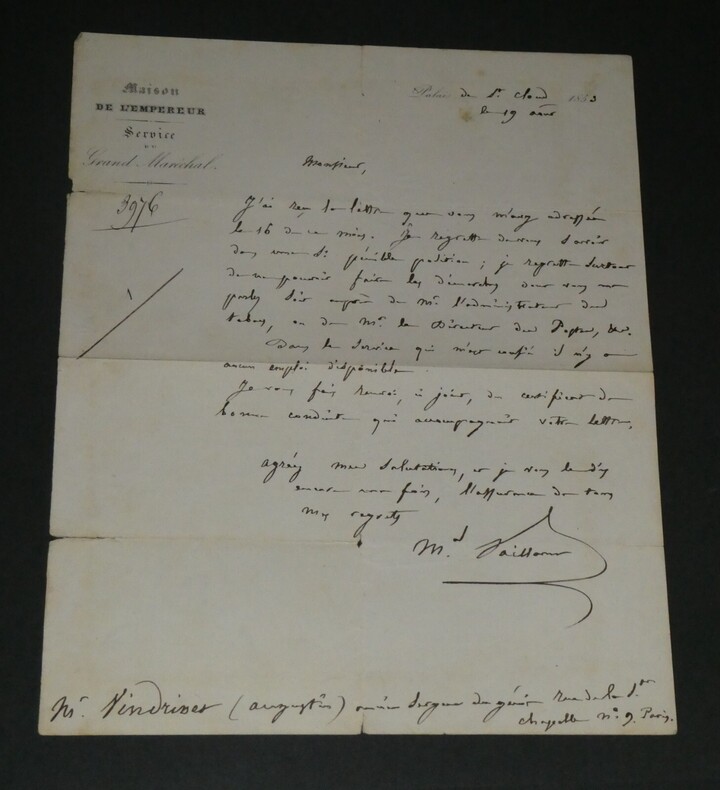 Maison
DE L'EMPEREUR
Service
DU
Grand Maréchal.
3976
Palais de St Cloud 1853
le 19 août
Monsieur,
J'ai reçu la lettre que vous m'avez adressée
le 16 de ce mois. Je regrette de vous savoir
dans une si pénible position ; je regrette surtout
de ne pouvoir faire les démarches dont vous me
parlez soit auprès de Mr. l'administrateur des
tabacs, ou de Mr. le Directeur des Postes, &c.
Dans le service qui m'est confié il n'y a
aucun emploi disponible.
Je vous fais renvoi, ci joint, du certificat de
bonne conduite qui accompagnait votre lettre.
agréez mes salutations, et je vous le dis
encore une fois, l'assurance de tous
mes regrets
Mal Vaillant
Mr. Vindrinet (augustin) ancien Sergent du génie rue de la Ste
chapelle No 9. Paris.